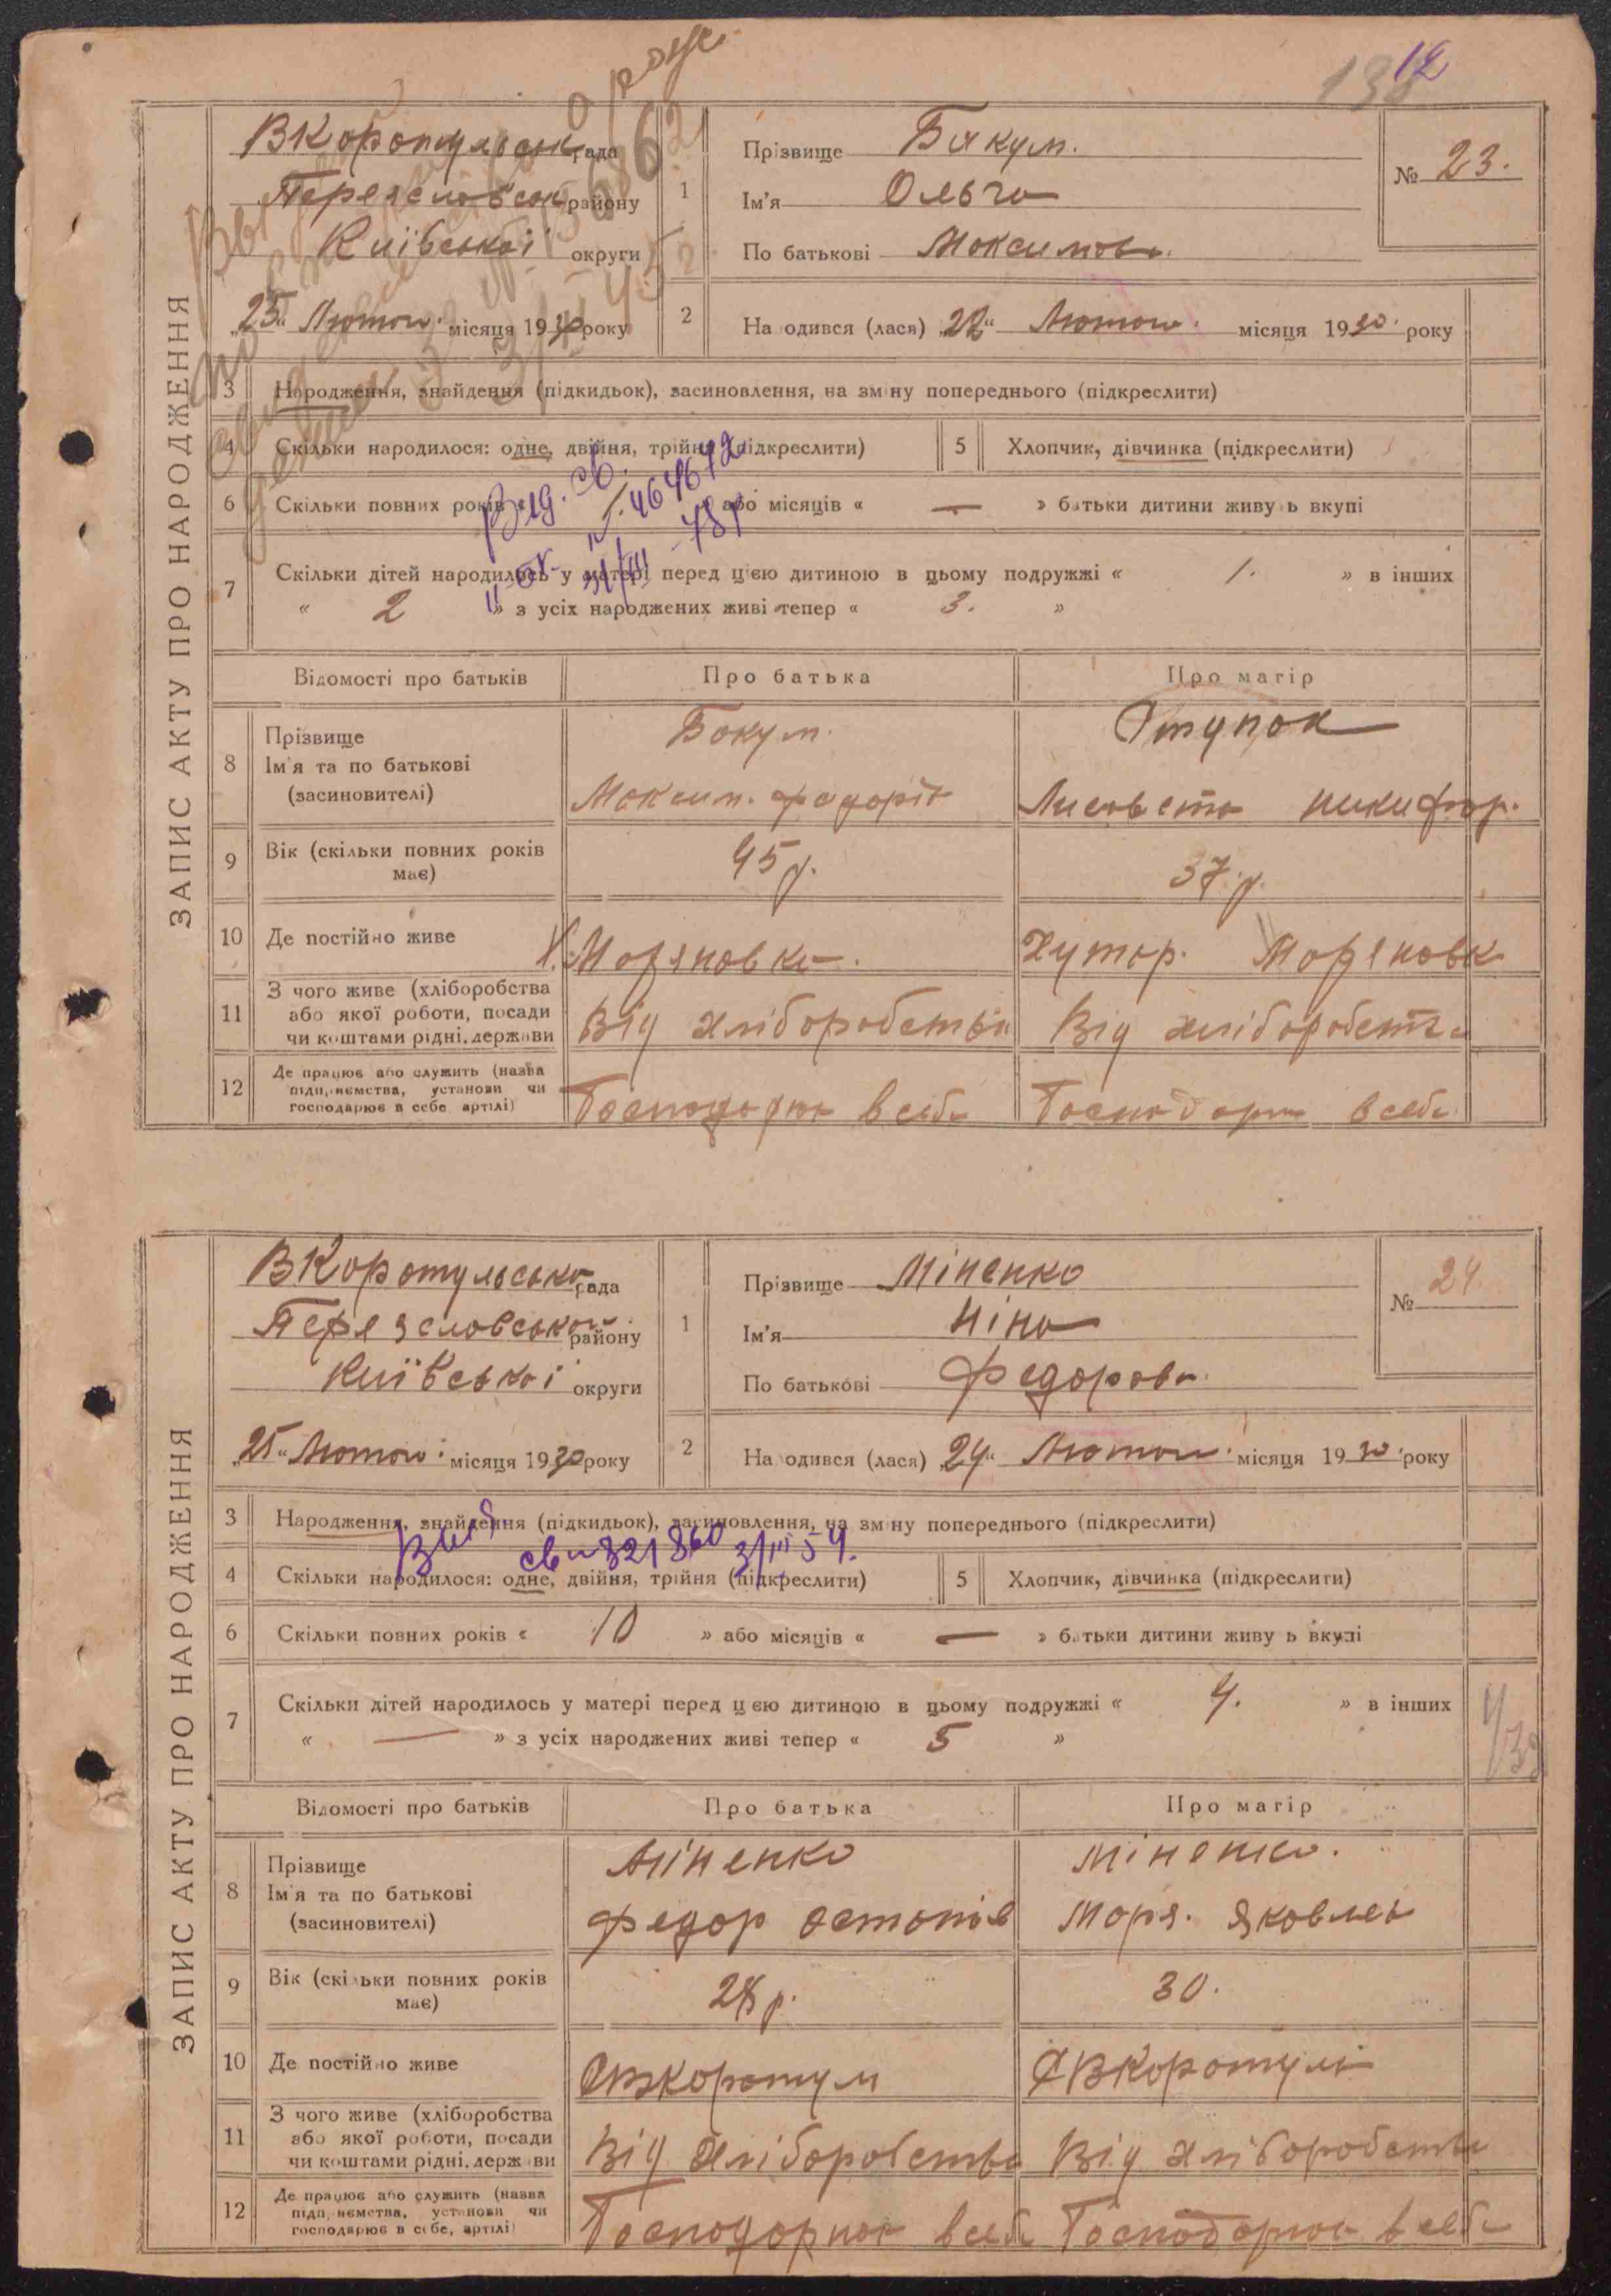 12
ЗАПИС АКТУ ПРО НАРОДЖЕННЯ
ВКоротульськ рада
Переяславськ району
Київської округи
„25“ Лютого місяця 1930 року
1 Прізвище Бакум.
Ім'я Ольга
По батькові Максимов.
№ 23.
2 На одився (лася) „22“ Лютого місяця 1930 року
3 Народження, знайдення (підкидьок), засиновлення, на зміну попереднього (підкреслити)
4 Скільки народилося: одне, двійня, трійня (підкреслити) 5 Хлопчик, дівчинка (підкреслити)
6 Скільки повних років « 1. » або місяців « — » батьки дитини живу ь вкупі
7 Скільки дітей народилось у матері перед цією дитиною в цьому подружжі « 1. » в інших
« 2 » з усіх народжених живі тепер « 3. »
Відомості про батьків Про батька Про матір
8 Прізвище
Ім'я та по батькові
(засиновителі)
Бакум. Ступок
Максим. Федорів Лисавета Никифор.
9 Вік (скільки повних років має) 45 р. 37 р.
10 Де постійно живе Х. Мар'яновка. Хутор. Мар'яновк
11 З чого живе (хліборобства
або якої роботи, посади
чи коштами рідні, держави
Від хліборобства Від хліборобства
12 Де працює або служить (назва
підприємства, установи чи
господарює в себе, артілі)
Господарює в себе Господарює в себе
ЗАПИС АКТУ ПРО НАРОДЖЕННЯ
ВКоротульська рада
Переяславської району
Київської округи
„25“ Лютого місяця 1930 року
1 Прізвище Міненко
Ім'я Ніна
По батькові Федоров.
№ 24.
2 На одився (лася) „24“ Лютого місяця 1930 року
3 Народження, знайдення (підкидьок), засиновлення, на зміну попереднього (підкреслити)
Вид св 821860 3/III 54.
4 Скільки народилося: одне, двійня, трійня (підкреслити) 5 Хлопчик, дівчинка (підкреслити)
6 Скільки повних років « 10 » або місяців « — » батьки дитини живу ь вкупі
7 Скільки дітей народилось у матері перед цією дитиною в цьому подружжі « 4. » в інших
« — » з усіх народжених живі тепер « 5 »
Відомості про батьків Про батька Про матір
8 Прізвище
Ім'я та по батькові
(засиновителі)
Міненко Міненко.
Федор Остапів Маря. Яковлев
9 Вік (скільки повних років має) 28 р. 30.
10 Де постійно живе С ВКоротул С ВКоротуль
11 З чого живе (хліборобства
або якої роботи, посади
чи коштами рідні, держави
Від хліборобства Від хліборобства
12 Де працює або служить (назва
підприємства, установи чи
господарює в себе, артілі)
Господарює в себе Господарює в себе